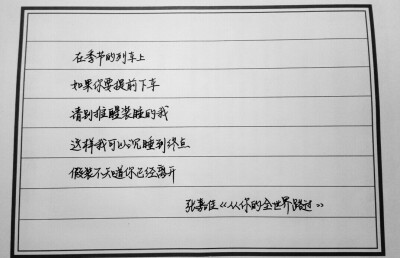 在季节的列车上
如果你要提前下车
请别推醒装睡的我
这样我可以沉睡到终点
假装不知道你已经离开
张嘉佳《从你的全世界路过》